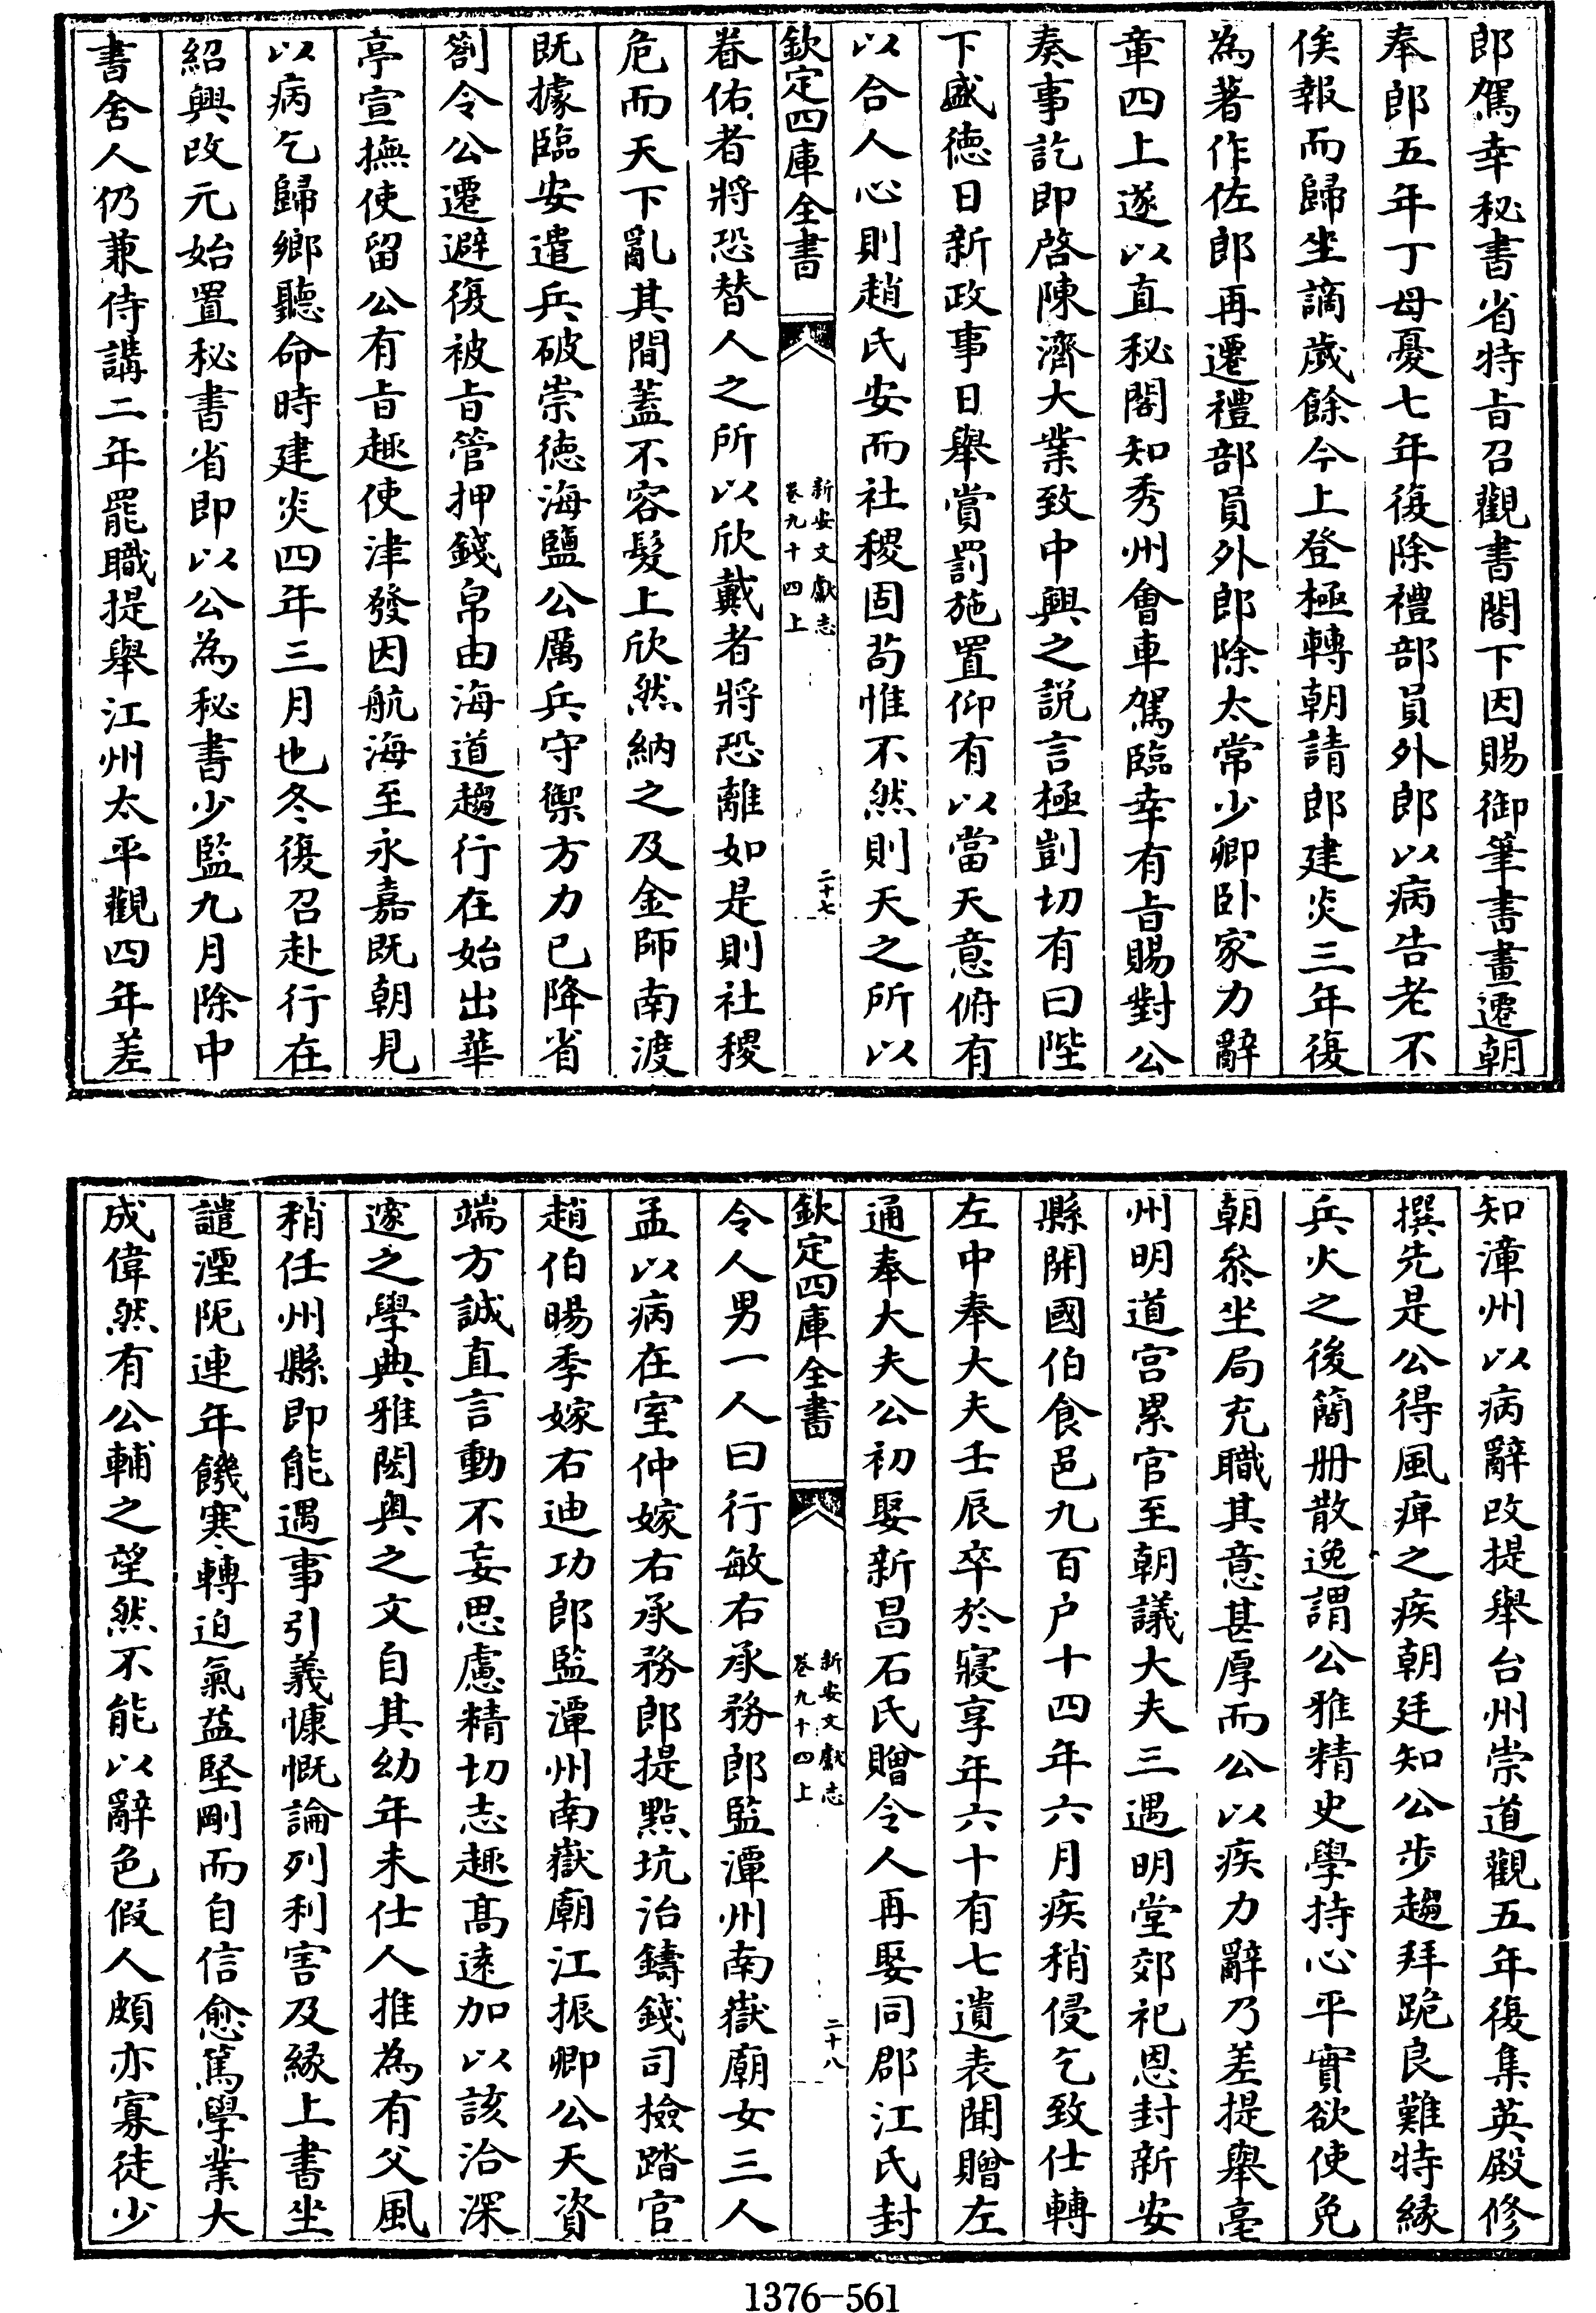 郎駕幸秘書省特㫖召觀書閣下因賜御筆書畫遷朝
奉郎五年丁母憂七年復除禮部員外郎以病告老不
俟報而歸坐謫歲餘今上登極轉朝請郎建炎三年復
為著作佐郎再遷禮部員外郎除太常少卿卧家力辭
章四上遂以直秘閣知秀州會車駕臨幸有㫖賜對公
奏事訖即啓陳濟大業致中興之説言極剴切有曰陛
下盛徳日新政事日舉賞罰施置仰有以當天意俯有
以合人心則趙氏安而社稷固茍惟不然則天之所以
欽定四庫全書
新安文獻志
卷九十四上
二十七
眷佑者將恐替人之所以欣戴者將恐離如是則社稷
危而天下亂其間蓋不容髮上欣然納之及金師南渡
既據臨安遣兵破崇徳海鹽公厲兵守禦方力已降省
劄令公遷避復被㫖管押錢帛由海道趨行在始出華
亭宣撫使留公有㫖趣使津發因航海至永嘉既朝見
以病乞歸鄉聽命時建炎四年三月也冬復召赴行在
紹興改元始置秘書省即以公為秘書少監九月除中
書舍人仍兼侍講二年罷職提舉江州太平觀四年差
知漳州以病辭改提舉台州崇道觀五年復集英殿修
撰先是公得風痺之疾朝廷知公步趨拜跪良難特緣
兵火之後簡册散逸謂公雅精史學持心平實欲使免
朝叅坐局充職其意甚厚而公以疾力辭乃差提舉亳
州明道宫累官至朝議大夫三遇明堂郊祀恩封新安
縣開國伯食邑九百户十四年六月疾稍侵乞致仕轉
左中奉大夫壬辰卒於寢享年六十有七遺表聞贈左
通奉大夫公初娶新昌石氏贈令人再娶同郡江氏封
欽定四庫全書
新安文獻志
卷九十四上
二十八
令人男一人曰行敏右承務郎監潭州南嶽廟女三人
孟以病在室仲嫁右承務郎提㸃坑治鑄錢司檢踏官
趙伯暘季嫁右迪功郎監潭州南嶽廟江振卿公天資
端方誠直言動不妄思慮精切志趣髙遠加以該洽深
邃之學典雅閎奥之文自其幼年未仕人推為有父風
稍任州縣即能遇事引義慷慨論列利害及緣上書坐
譴湮阨連年饑寒轉迫氣益堅剛而自信愈篤學業大
成偉然有公輔之望然不能以辭色假人頗亦寡徒少
1376—561